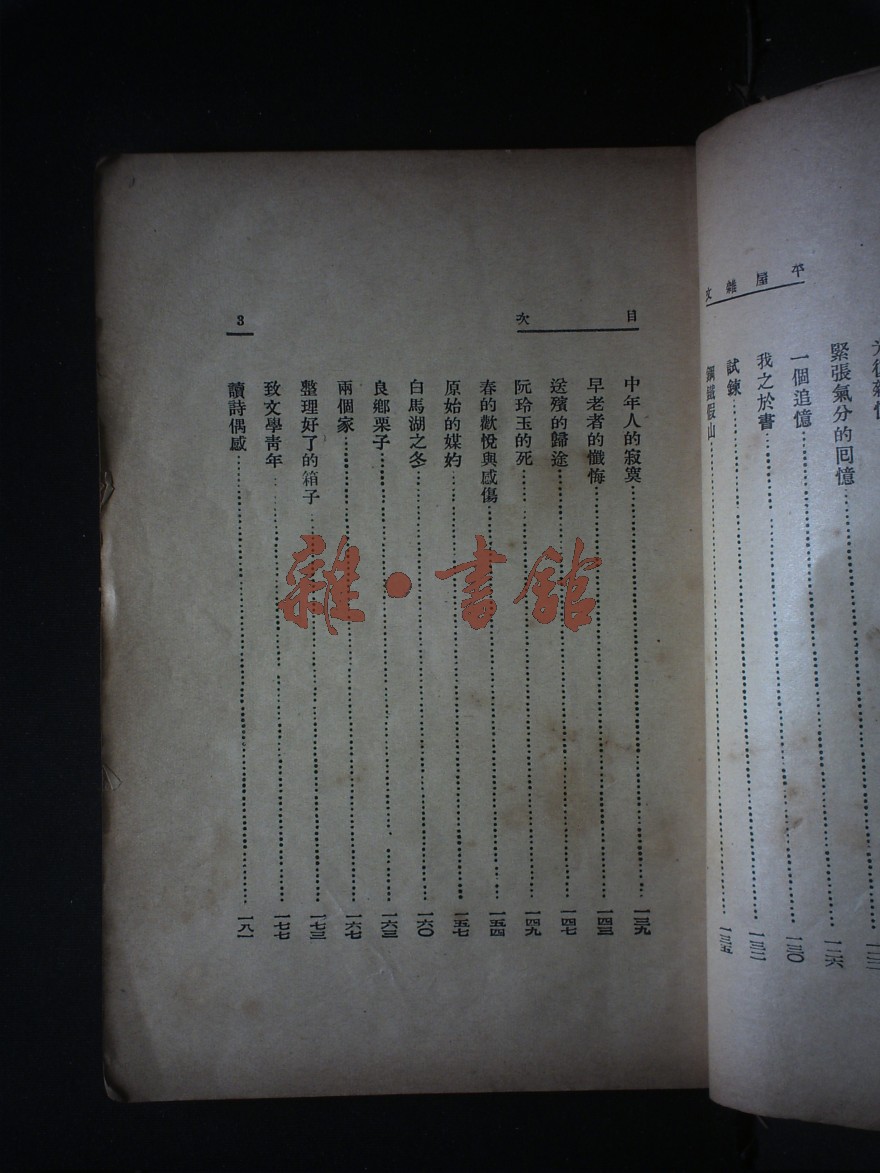 平屋雜文
緊張氣分的回憶……一二六
一個追憶……一三〇
我之於書……一三二
試鍊……一三五
鋼鐵假山……
目次
中年人的寂寞……一三九
早老者的懺悔……一四三
送殯的歸途……一四七
阮玲玉的死……一四九
春的歡悅與感傷……一五四
原始的媒妁……一五七
白馬湖之冬……一六〇
良鄉栗子……一六三
兩個家……一六七
整理好了的箱子……一七三
致文學青年……一七七
讀詩偶感……一八一
3
雜·書館